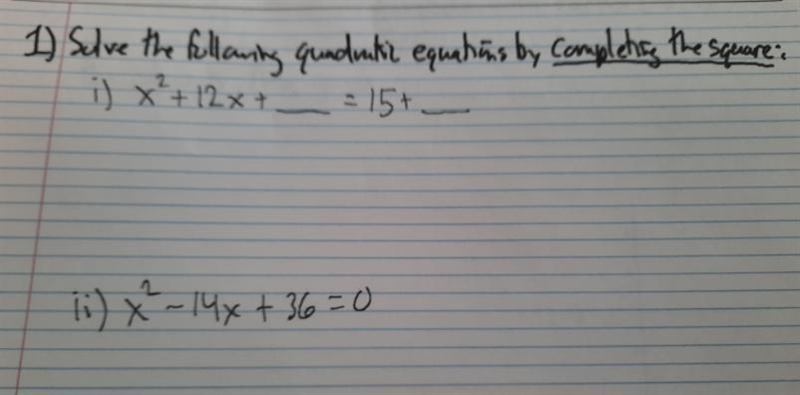 1) Solve the following quadratic equations by completing the square:
i) x² + 12x + ___ = 15 + ___
ii) x² - 14x + 36 = 0